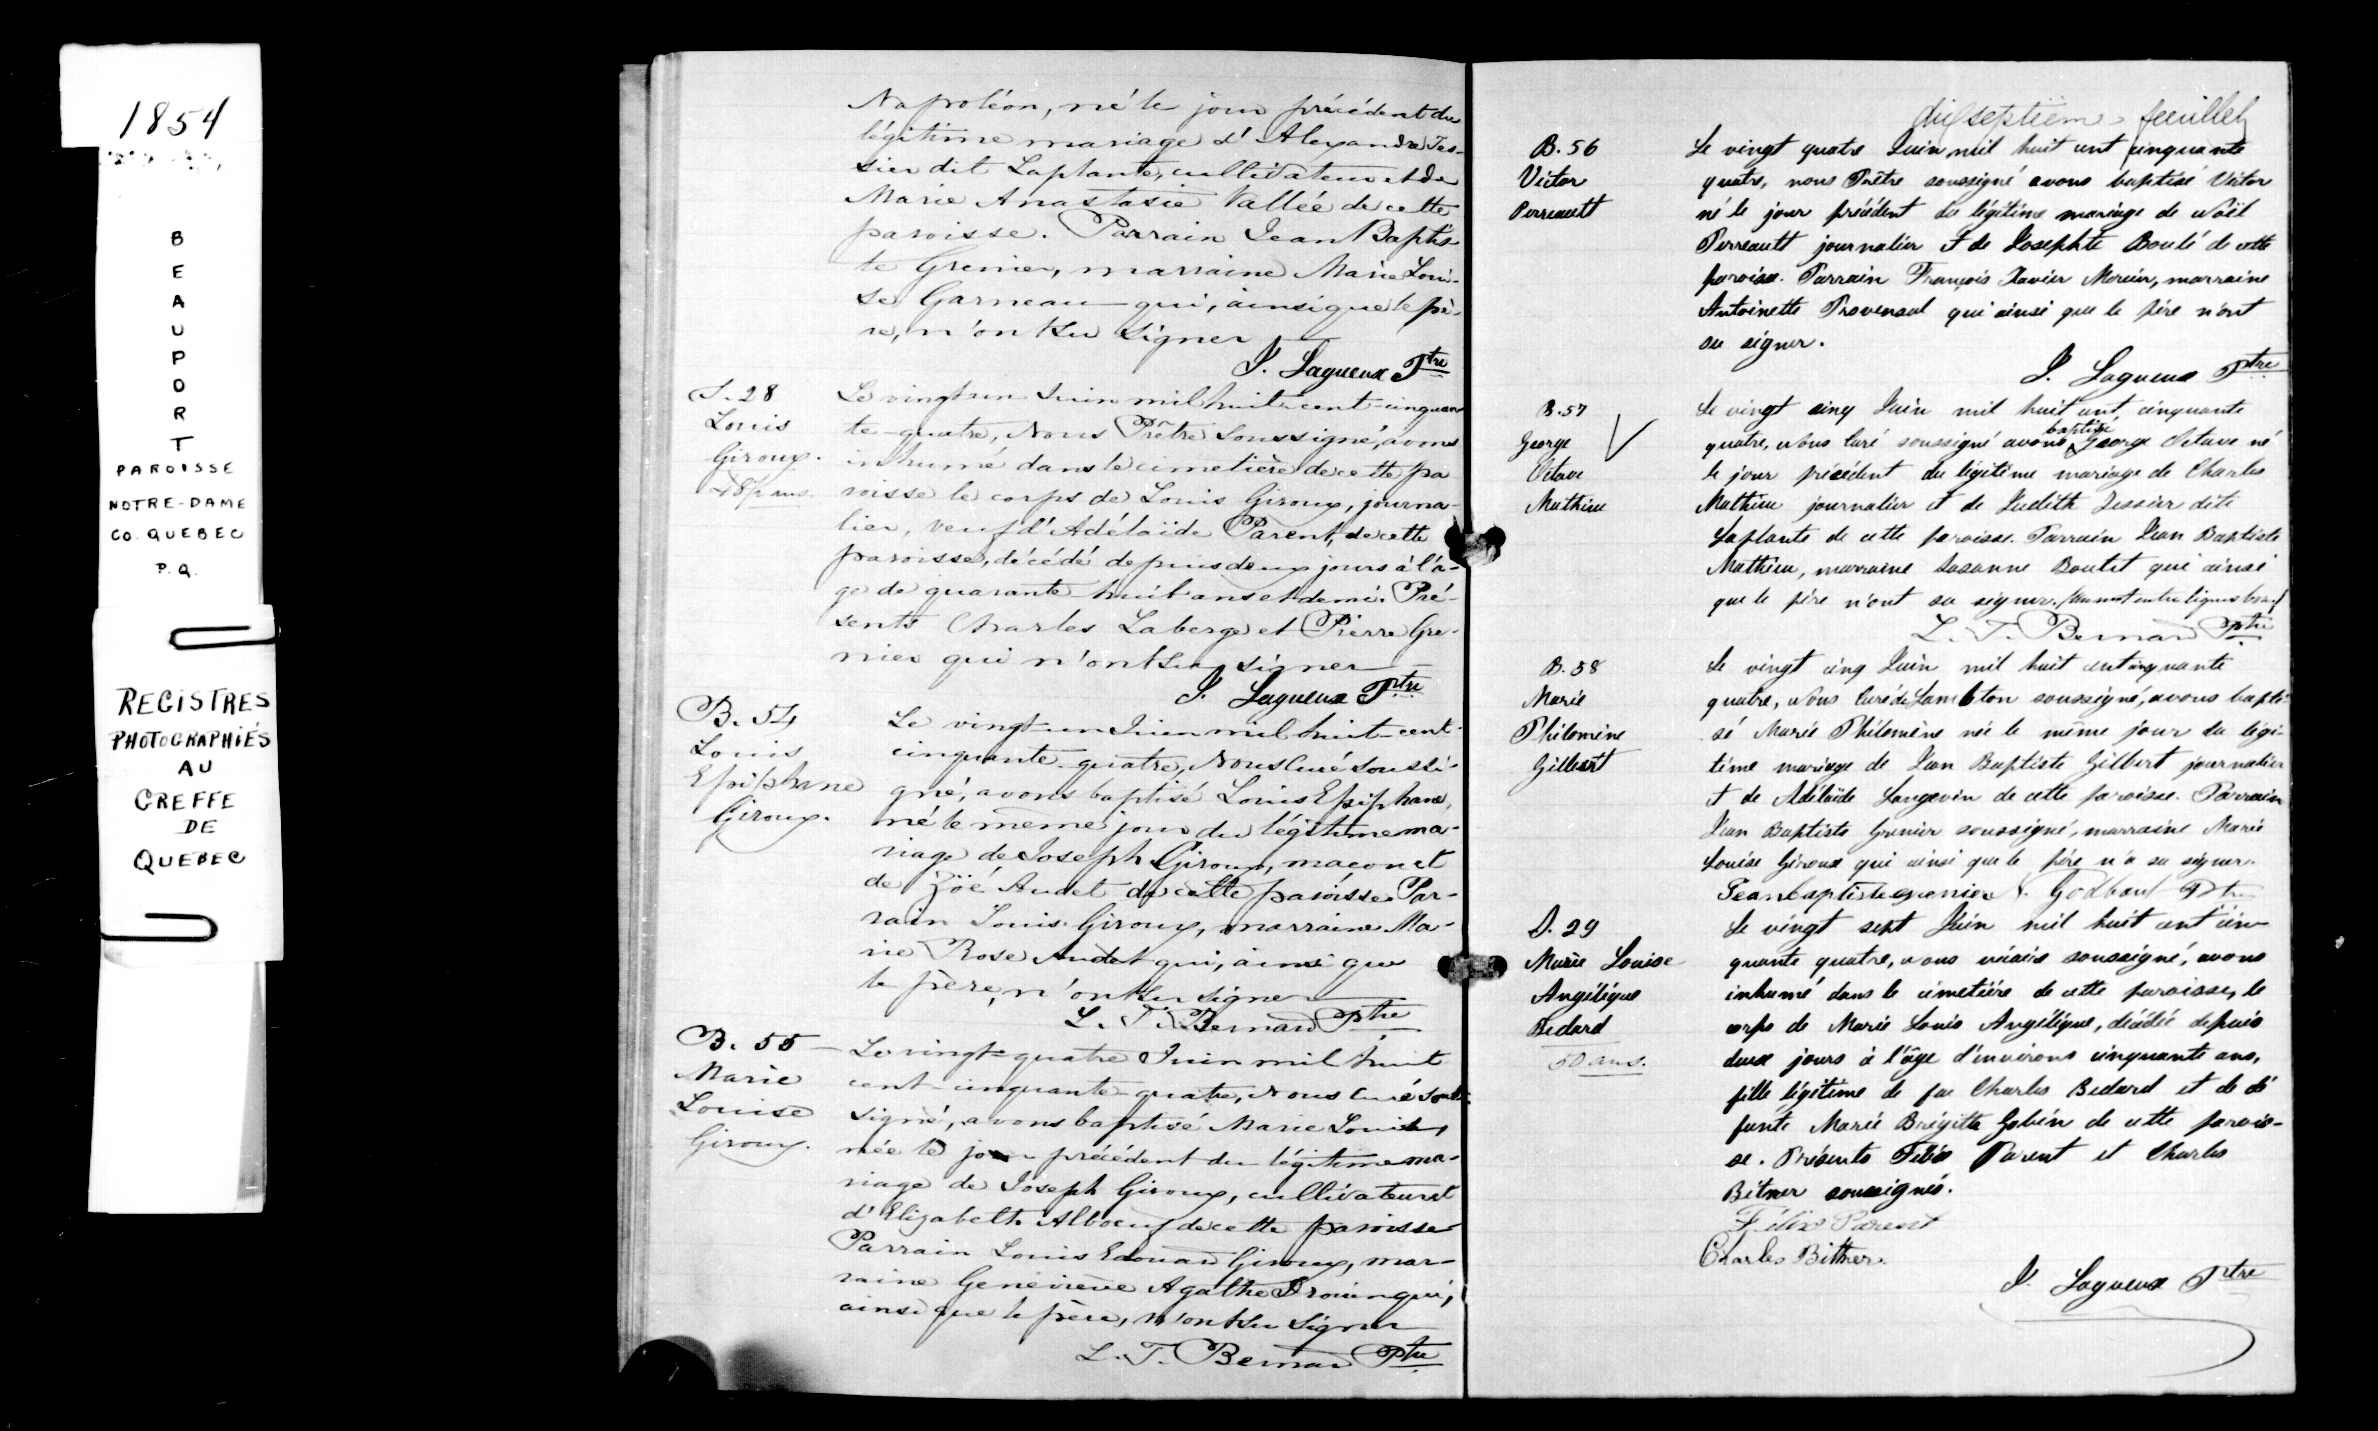 1854
B
E
A
U
P
O
R
T
PAROISSE
NOTRE-DAME
CO. QUEBEC
P.Q.
REGISTRES
PHOTOGRAPHIÉS
AU
GREFFE
DE
QUEBEC
Napoléon, né le jour précédent du
légitime mariage d'Alexandre Tes-
sier dit Laplante, cultivateur et de
Marie Anastasie Vallée de cette
paroisse. Parrain Jean Baptis
te Grenier, marraine Marie Loui-
se Garneau qui, ainsi que le pè-
re, n'ont su signer
J. Lagueux Ptre
S. 28
Louis
Giroux.
48½ ans.
Le vingt un Juin mil huit cent cinquan
te-quatre, Nous Prêtre Soussigné, avons
inhumé dans le cimetière de cette pa
roisse le corps de Louis Giroux, journa-
lier, veuf d'Adélaïde Parent, de cette
paroisse, décédé depuis deux jours à l'â-
ge de quarante-huit ans et demi. Pré-
sents Charles Laberge et Pierre Gre-
nier qui n'ont su signer
J. Lagueux Ptre
B. 54
Louis
Epiphane
Giroux.
Le vingt-un Juin mil huit-cent-
cinquante-quatre, Nous Curé Soussi-
gné, avons baptisé Louis Epiphane,
né le même jour du légitime ma-
riage de Joseph Giroux, maçon et
de Zöé Audet de cette paroisse Par-
rain Louis Giroux, marraine Ma-
rie Rose Audet qui, ainsi que
le père, n'ont su signer
L. T. Bernard Ptre
B. 55
Marie
Louise
Giroux.
Le vingt-quatre Juin mil huit
cent-cinquante-quatre, Nous Curé sous
signé, avons baptisé Marie Louise,
née le jour précédent du légitime ma-
riage de Joseph Giroux, cultivateur et
d'Elizabeth Alboeuf de cette paroisse
Parrain Louis Edouard Giroux, mar-
raine Geneviève Agathe Drouin qui,
ainsi que le père, n'ont su signer
L. T. Bernard Ptre
dixseptièm feuillet
B. 56
Victor
Perreault
Le vingt quatre Juin mil huit cent cinquante
quatre, nous Prêtre soussigné avons baptisé Victor
né le jour précédent du légitime mariage de Noël
Perreault journalier et de Josephte Boulé de cette
paroisse. Parrain François Xavier Mercier, marraine
Antoinette Provencal qui ainsi que le père n'ont
su signer.
J. Lagueux Ptre
B. 57
George
Octave
Mathieu
Le vingt cinq Juin mil huit cent cinquante
quatre, Nous Curé soussigné avons baptisé George Octave né
le jour précédent du légitime mariage de Charles
Mathieu journalier et de Judith Tessier dite
Laplante de cette paroisse. Parrain Jean Baptiste
Mathieu, marraine Susanne Boutet qui ainsi
que le père n'ont su signer. (Un mot entre lignes bon)
L. T. Bernard Ptre
B. 58
Marie
Philomène
Gilbert
Le vingt cinq Juin mil huit cent cinquante
quatre, Nous Curé de Lambton soussigné, avons bapti-
sé Marie Philomène née le même jour du légi-
time mariage de Jean Baptiste Gilbert journalier
et de Adélaïde Langevin de cette paroisse. Parrain
Jean Baptiste Grenier soussigné, marraine Marie
Louise Giroux qui ainsi que le père n'a su signer.
Jean baptiste grenier N. Godbout Ptre
S. 29
Marie Louise
Angélique
Bedard
50 ans.
Le vingt sept Juin mil huit cent cin-
quante quatre, nous vicaire soussigné, avons
inhumé dans le cimetière de cette paroisse, le
corps de Marie Louis Angélique, décédée depuis
deux jours à l'âge d'environs cinquante ans,
fille légitime de feu Charles Bedard et de dé
funte Marie Brigitte Gobin de cette parois-
se. Présents Félix Parent et Charles
Bitner soussignés.
Félix Parent
Charles Bittner.
J. Lagueux Ptre